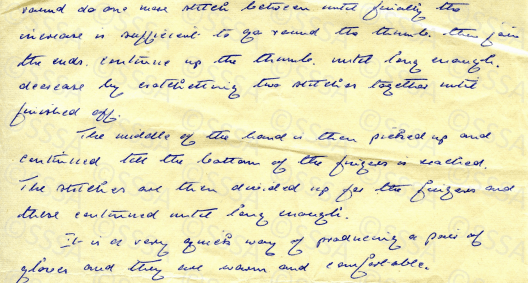 round do one more stitch between until finally the
increase is sufficient to go round the thumb. then join
the ends. continue up the thumb. until long enough.
decrease by crotchetting two stitches together until
finished off.
The middle of the hand is then picked up and
continued till the bottom of the fingers is reached.
The stitches are then divided up for the fingers and
these continued until long enough.
It is a very quick way of producing a pair of
gloves and they are warm and comfortable.